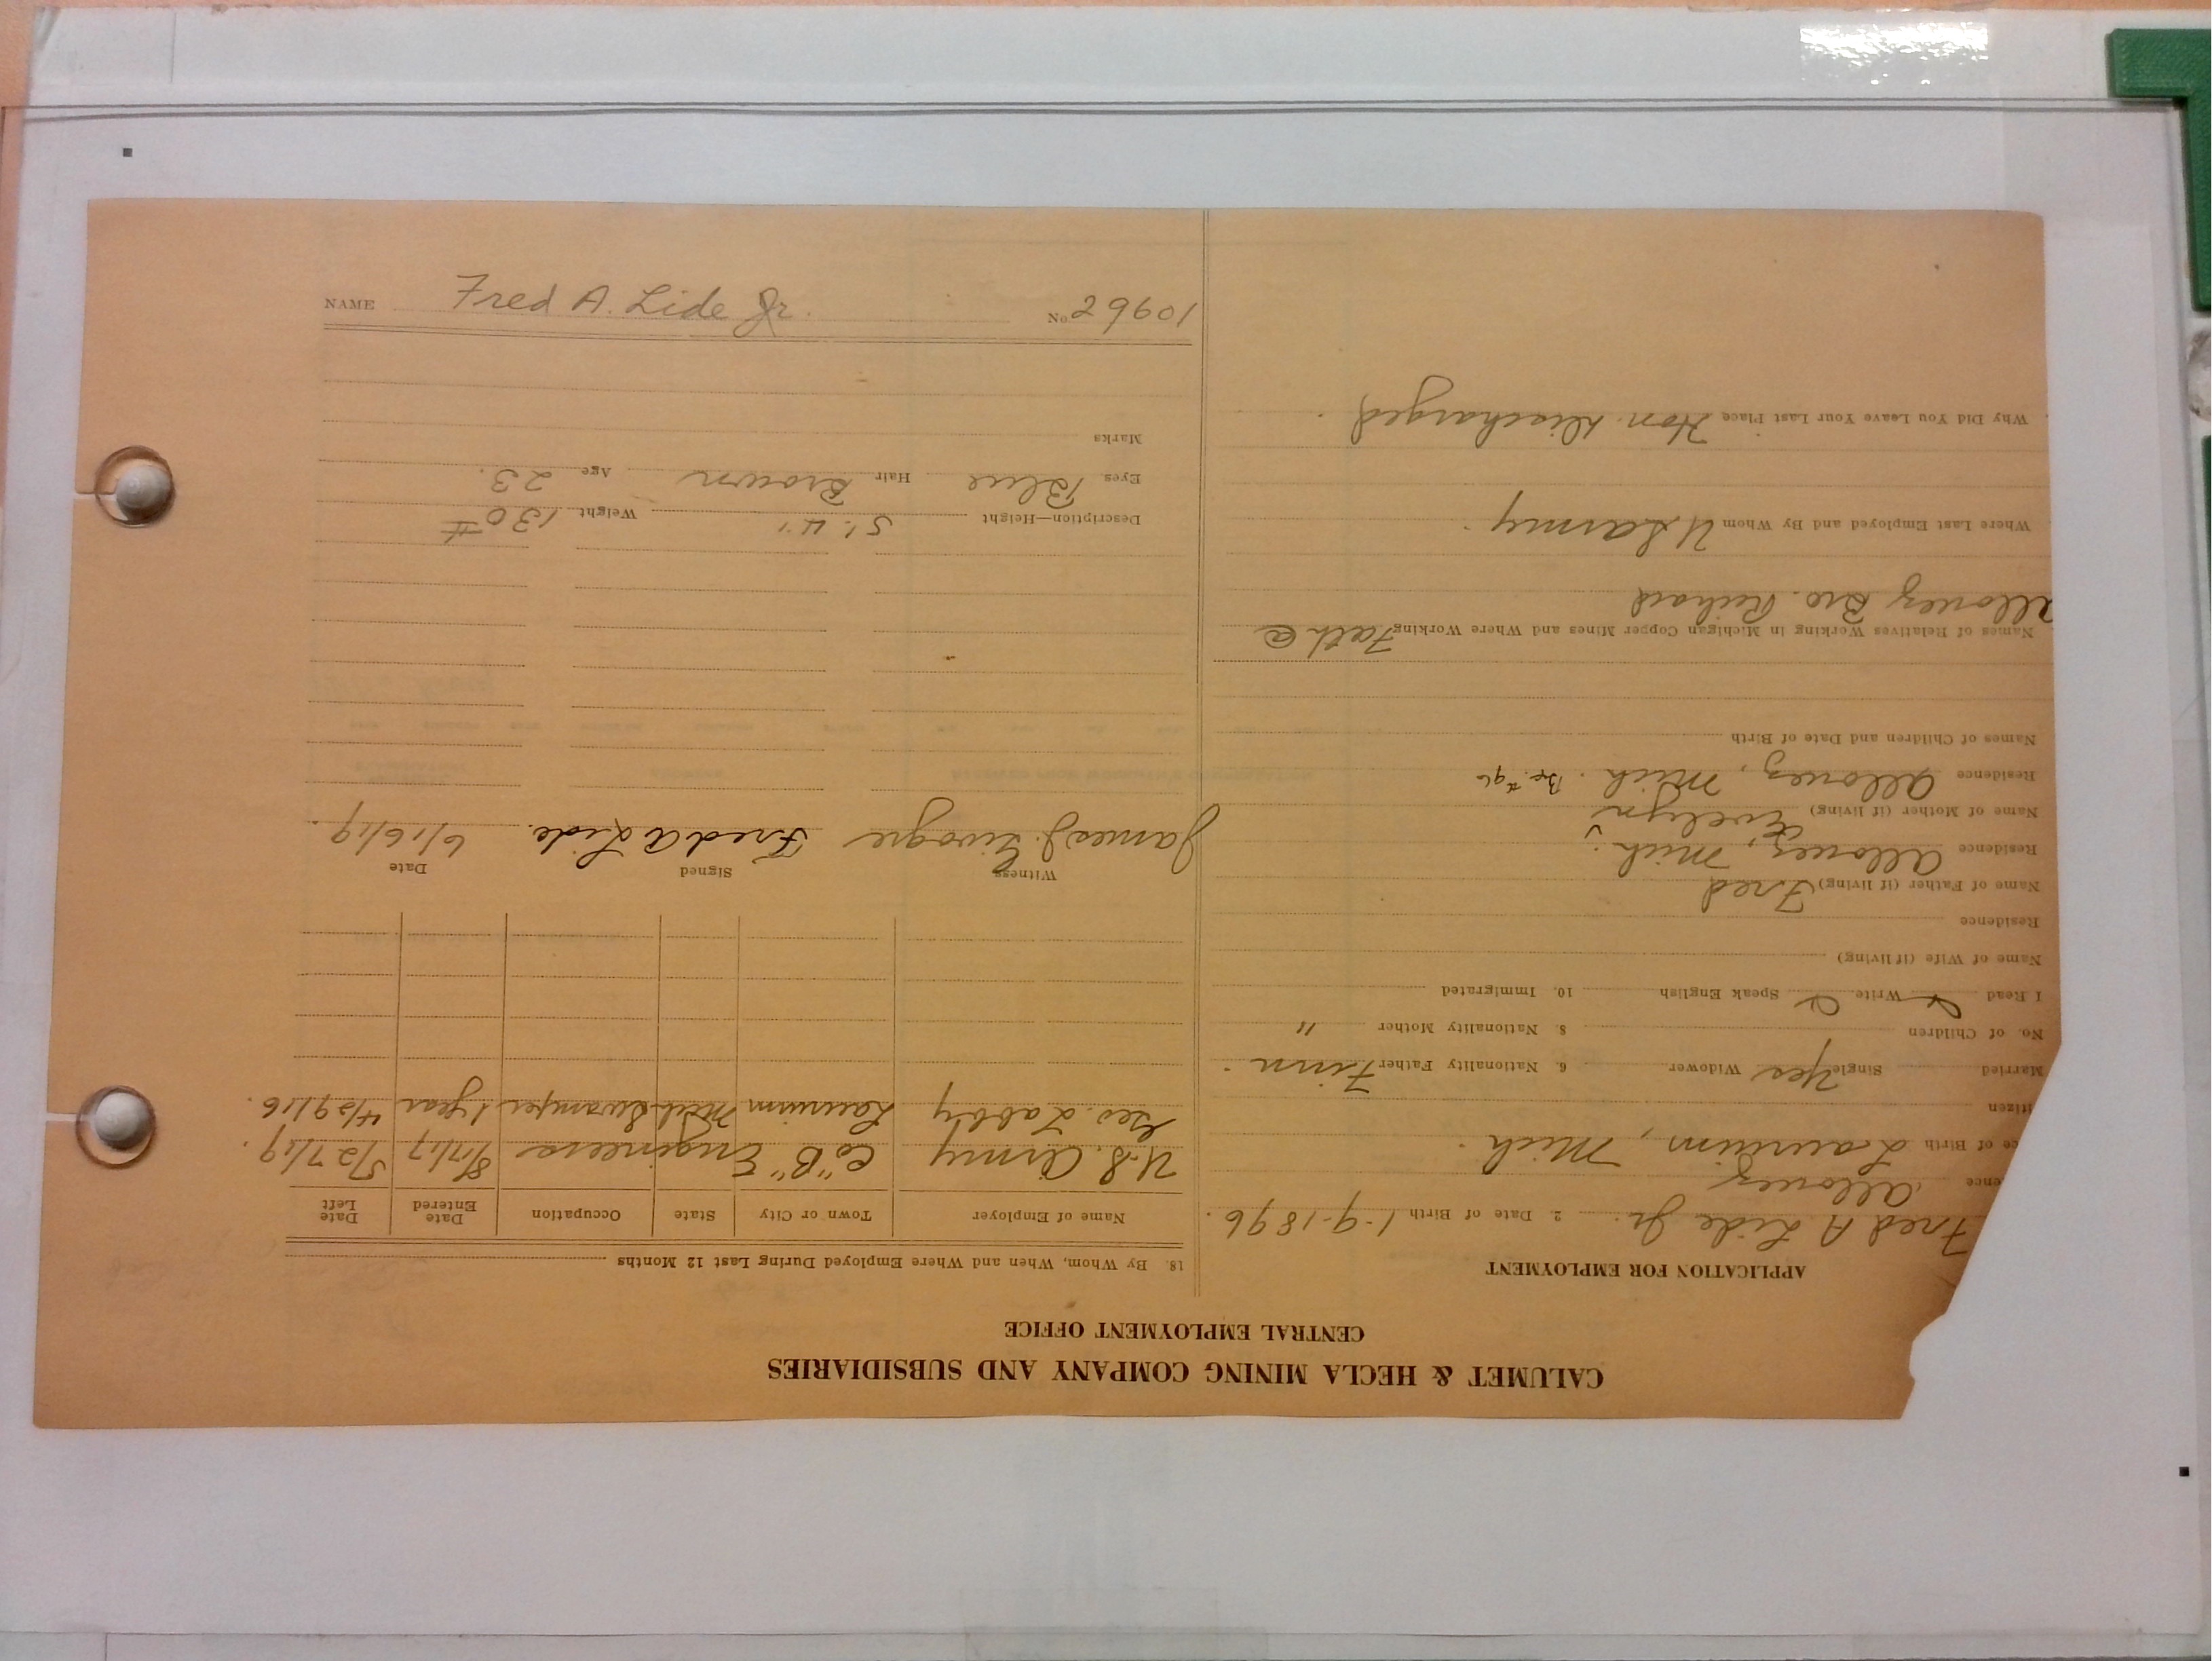 CALUMET & HECLA MINING COMPANY AND SUBSIDIARIES
CENTRAL EMPLOYMENT OFFICE
APPLICATION FOR EMPLOYMENT
Fred A Lide Jr. 2. Date of Birth 1-9-1896.
ence Allouez
ce of Birth Laurium, Mich.
itizen
Married Single Yes Widower 6. Nationality Father Finn.
No. of Children 8. Nationality Mother "
I Read Write Speak English 10. Immigrated
Name of Wife (if living)
Residence
Name of Father (if living) Fred
Residence Allouez, Mich.
Name of Mother (if living) Evelyn
Residence Allouez, Mich. Bx. #96
Names of Children and Date of Birth
Names of Relatives Working in Michigan Copper Mines and Where Working Fath @
Allouez Bro. Richard
Where Last Employed and By Whom U S Army.
Why Did You Leave Your Last Place Hon. Discharged.
18. By Whom, When and Where Employed During Last 12 Months
Name of Employer Town or City State Occupation Date Entered Date Left
U.S. Army Co "B" Engineers 8/17/17 5/27/19.
Geo. Labby Laurium Mich Swamper 1 year 4/29/16.
Witness Signed Date
James J. Fred A Lide. 6/16/19.
Description—Height 5'. 4". Weight 130#
Eyes Blue Hair Brown Age 23.
Marks
NAME Fred A. Lide Jr. No 29601